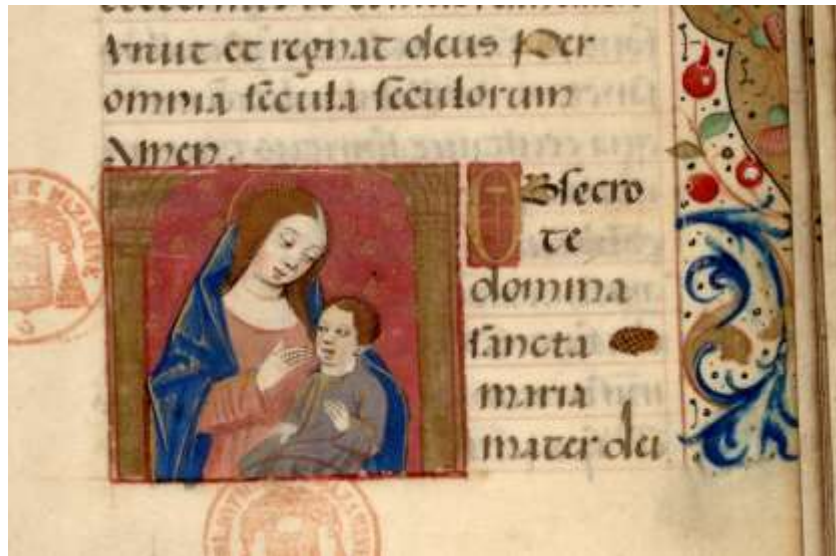 viuit et regnat deus Per
omnia secula seculorum
Amen.
Obsecro
te
domina
sancta
maria
mater dei